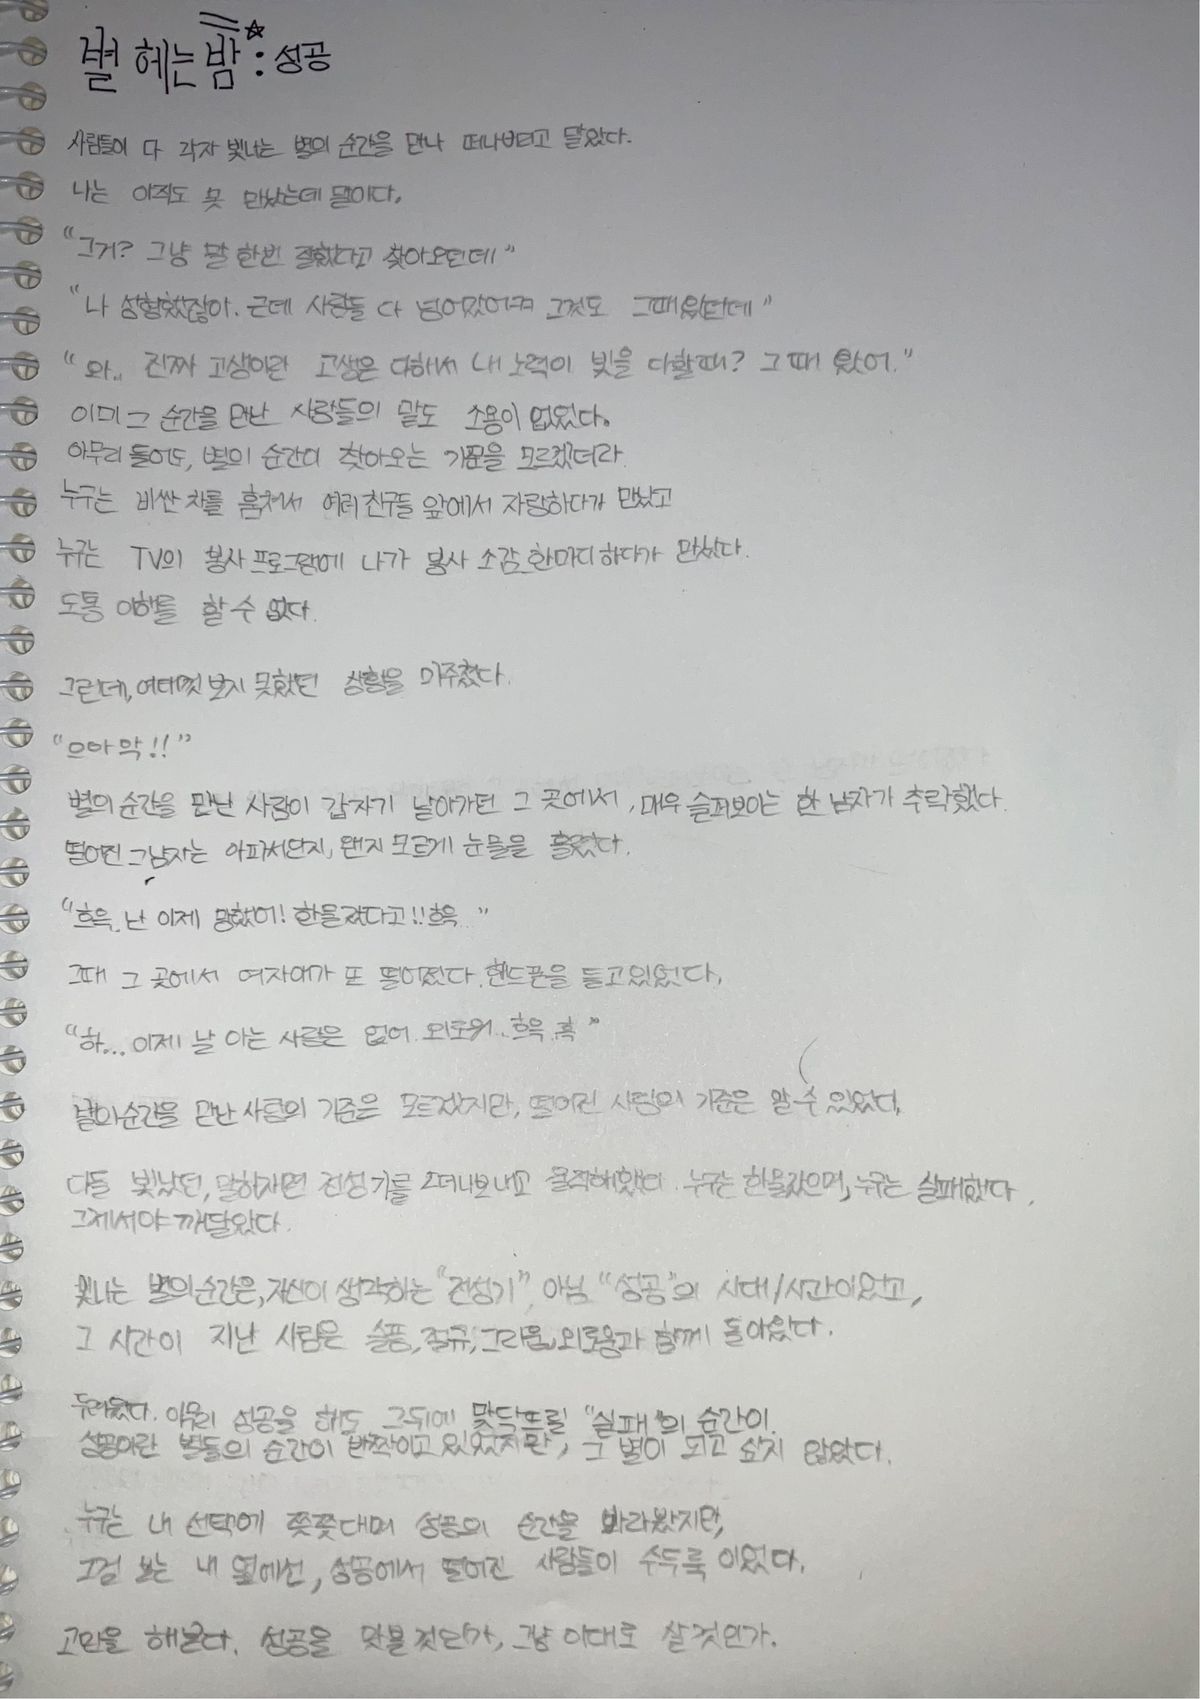 별 헤는 밤 : 성공
사람들이 다 각자 빛나는 별의 순간을 만나 떠나버리고 말았다.
나는 아직도 못 만났는데 말이다.
"그거? 그냥 말 한번 잘했다고 찾아오던데"
"나 성형했잖아. 근데 사람들 다 넘어갔어ㅋㅋ 그것도 그때였던데"
"와.. 진짜 고생이란 고생은 다해서 내 노력이 빛을 다할때? 그때 왔어."
이미 그 순간을 만난 사람들의 말도 소용이 없었다.
아무리 들어도, 별의 순간이 찾아오는 기준을 모르겠더라
누구는 비싼 차를 훔쳐서 여러 친구들 앞에서 자랑하다가 만났고
누구는 TV의 봉사 프로그램에 나가 봉사 소감 한마디 하다가 만났다.
도통 이해를 할 수 없다.
그런데, 여태껏 보지 못했던 상황을 마주쳤다.
"으아악!!"
별의 순간을 만난 사람이 갑자기 날아가던 그 곳에서, 매우 슬퍼보이는 한 남자가 추락했다.
떨어진 그남자는 아파서인지, 왠지 모르게 눈물을 흘렸다.
"흐윽. 난 이제 망했어! 한물 갔다고!! 흐윽.."
그때 그 곳에서 여자애가 또 떨어졌다. 핸드폰을 들고있었다.
"하... 이제 날 아는 사람은 없어. 외로워.. 흐윽. 흑"
별의순간을 만난 사람의 기준은 모르겠지만, 떨어진 사람의 기준은 알 수 있었다.
다들 빛났던, 말하자면 전성기를 떠나보내고 울적해했다. 누구는 한물갔으며, 누구는 실패했다.
그제서야 깨달았다.
빛나는 별의순간은, 자신이 생각하는 "전성기", 아님 "성공"의 시대/시간이었고,
그 시간이 지난 사람은 슬픔, 절규, 그리움, 외로움과 함께 돌아왔다.
두려웠다. 아무리 성공을 해도 그뒤에 맞닥뜨릴 "실패"의 순간이.
성공이란 별들의 순간이 반짝이고 있었지만, 그 별이 되고 싶지 않았다.
누구는 내 선택에 쯧쯧대며 성공의 순간을 바라봤지만,
그걸 보는 내 옆에선, 성공에서 떨어진 사람들이 수두룩 이었다.
고민을 해본다. 성공을 맛볼 것인가, 그냥 이대로 살 것인가.